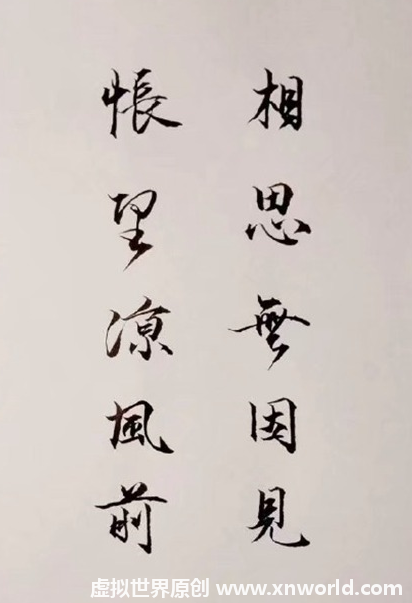 相思無因見
悵望涼風前
虚拟世界原创 www.xnworld.com